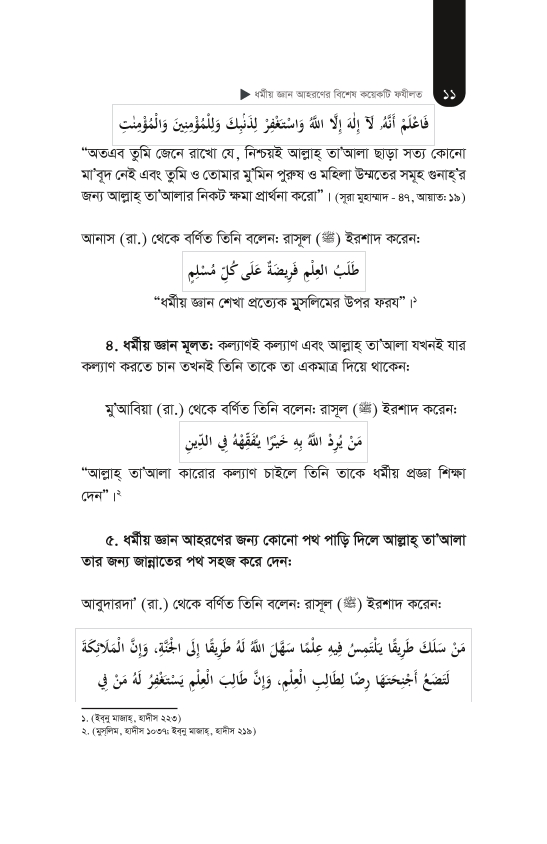 ▶ ধর্মীয় জ্ঞান আহরণের বিশেষ কয়েকটি ফযীলত ১১
فَاعْلَمْ أَنَّهُ، لَآ إِلٰهَ إِلَّا اللَّهُ وَاسْتَغْفِرْ لِذَنْبِكَ وَلِلْمُؤْمِنِينَ وَالْمُؤْمِنٰتِ
“অতএব তুমি জেনে রাখো যে, নিশ্চয়ই আল্লাহ্ তা’আলা ছাড়া সত্য কোনো
মা’বূদ নেই এবং তুমি ও তোমার মু’মিন পুরুষ ও মহিলা উম্মতের সমূহ গুনাহ্’র
জন্য আল্লাহ্ তা’আলার নিকট ক্ষমা প্রার্থনা করো”। (সূরা মুহাম্মাদ - ৪৭, আয়াত: ১৯)
আনাস (রা.) থেকে বর্ণিত তিনি বলেন: রাসূল (ﷺ) ইরশাদ করেন:
طَلَبُ العِلْمِ فَرِيضَةٌ عَلَى كُلِّ مُسْلِمٍ
“ধর্মীয় জ্ঞান শেখা প্রত্যেক মুসলিমের উপর ফরয”।১
৪. ধর্মীয় জ্ঞান মূলত: কল্যাণই কল্যাণ এবং আল্লাহ্ তা’আলা যখনই যার
কল্যাণ করতে চান তখনই তিনি তাকে তা একমাত্র দিয়ে থাকেন:
মু’আবিয়া (রা.) থেকে বর্ণিত তিনি বলেন: রাসূল (ﷺ) ইরশাদ করেন:
مَنْ يُرِدْ اللَّهُ بِهِ خَيْرًا يُفَقِّهْهُ فِي الدِّينِ
“আল্লাহ্ তা’আলা কারোর কল্যাণ চাইলে তিনি তাকে ধর্মীয় প্রজ্ঞা শিক্ষা
দেন”।২
৫. ধর্মীয় জ্ঞান আহরণের জন্য কোনো পথ পাড়ি দিলে আল্লাহ্ তা’আলা
তার জন্য জান্নাতের পথ সহজ করে দেন:
আবুদারদা’ (রা.) থেকে বর্ণিত তিনি বলেন: রাসূল (ﷺ) ইরশাদ করেন:
مَنْ سَلَكَ طَرِيقًا يَلْتَمِسُ فِيهِ عِلْمًا سَهَّلَ اللَّهُ لَهُ طَرِيقًا إِلَى الْجَنَّةِ، وَإِنَّ الْمَلَائِكَةَ
لَتَضَعُ أَجْنِحَتَهَا رِضًا لِطَالِبِ الْعِلْمِ، وَإِنَّ طَالِبَ الْعِلْمِ يَسْتَغْفِرُ لَهُ مَنْ فِي
১. (ইব্‌নু মাজাহ্, হাদীস ২২৩)
২. (মুস্‌লিম, হাদীস ১০৩৭; ইব্‌নু মাজাহ্, হাদীস ২১৯)